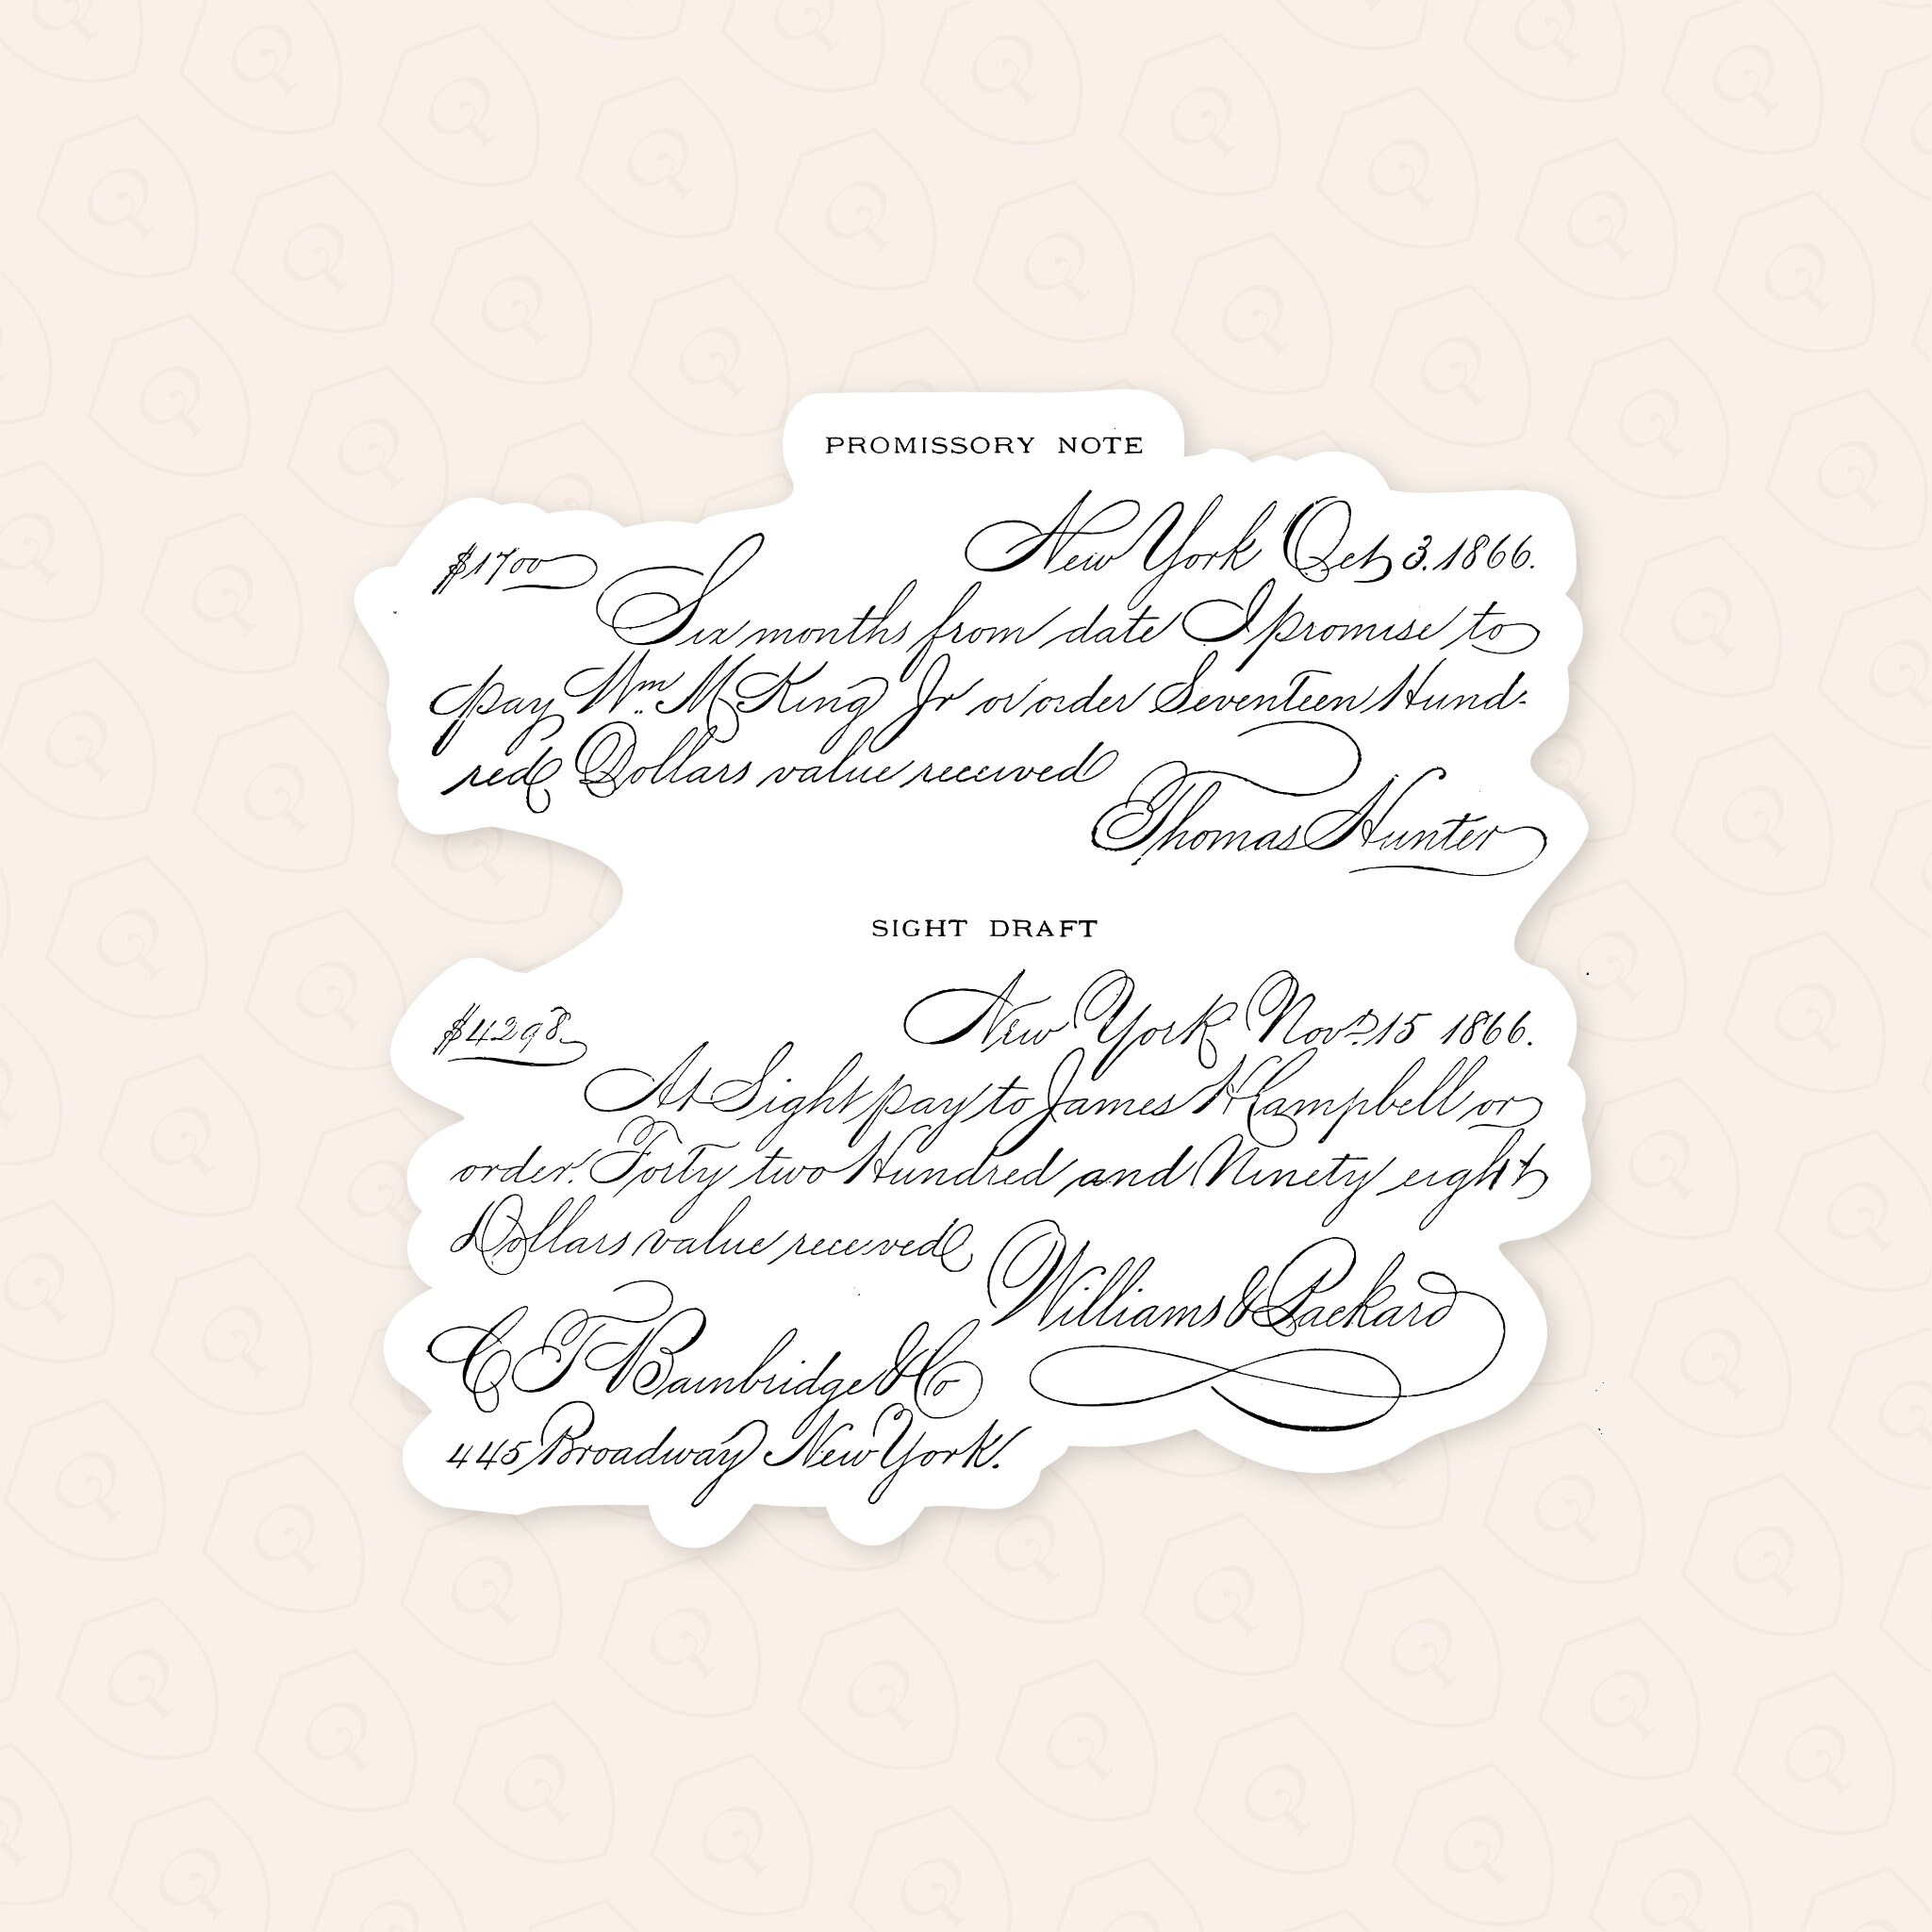 PROMISSORY NOTE
$1700 New York Oct 3. 1866.
Six months from date I promise to
pay Wm. McKing Jr or order Seventeen Hund-
red Dollars value received
Thomas Hunter
SIGHT DRAFT
$4298 New York Novr. 15 1866.
At Sight pay to James H Campbell or
order. Forty two Hundred and Ninety eight
Dollars value received
Williams & Packard
C T Bambridge & Co
445 Broadway New York.